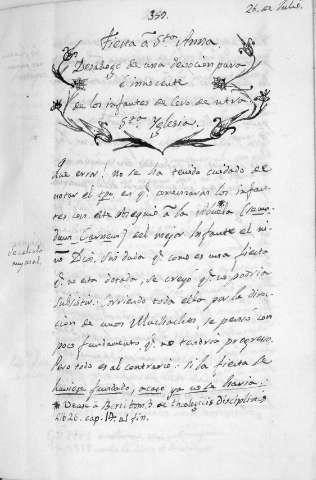 350.
26. de Julio.
Fiesta à Sta. Anna.
Desahogo de una devocion pura
è innocente
de los infantes de Coro de ntra
Sta. Yglesia.
Que error! no se ha tenido cuidado de
notar el tpo en q. comenzaron los infan-
tes con este obsequio à la Abuela (secun-
dum Carnem) del mejor Infante el ni-
no Dios. Sin duda q. como es una fiesta
q. no esta dotada, se creyó q. no podria
subsistir. Corriendo toda ella por la direc-
cion de unos Muchachos, se pensó con
poco fundamento q. no tendria progreso.
Pero todo es al contrario: si la fiesta se
huviese fundado, acaso ya no se haria:
* Vease à Bened. de Ecclesiis Disciplin
lib 26. cap. 19. al fin.